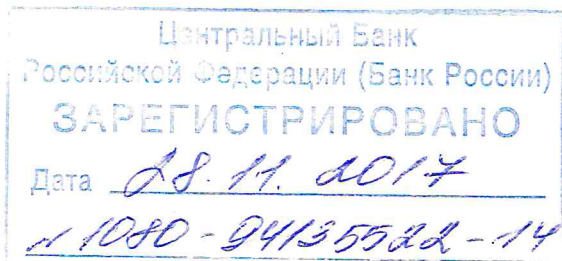 Центральный Банк
Российской Федерации (Банк России)
ЗАРЕГИСТРИРОВАНО
Дата 28.11.2017
№ 1080-94/35522-14